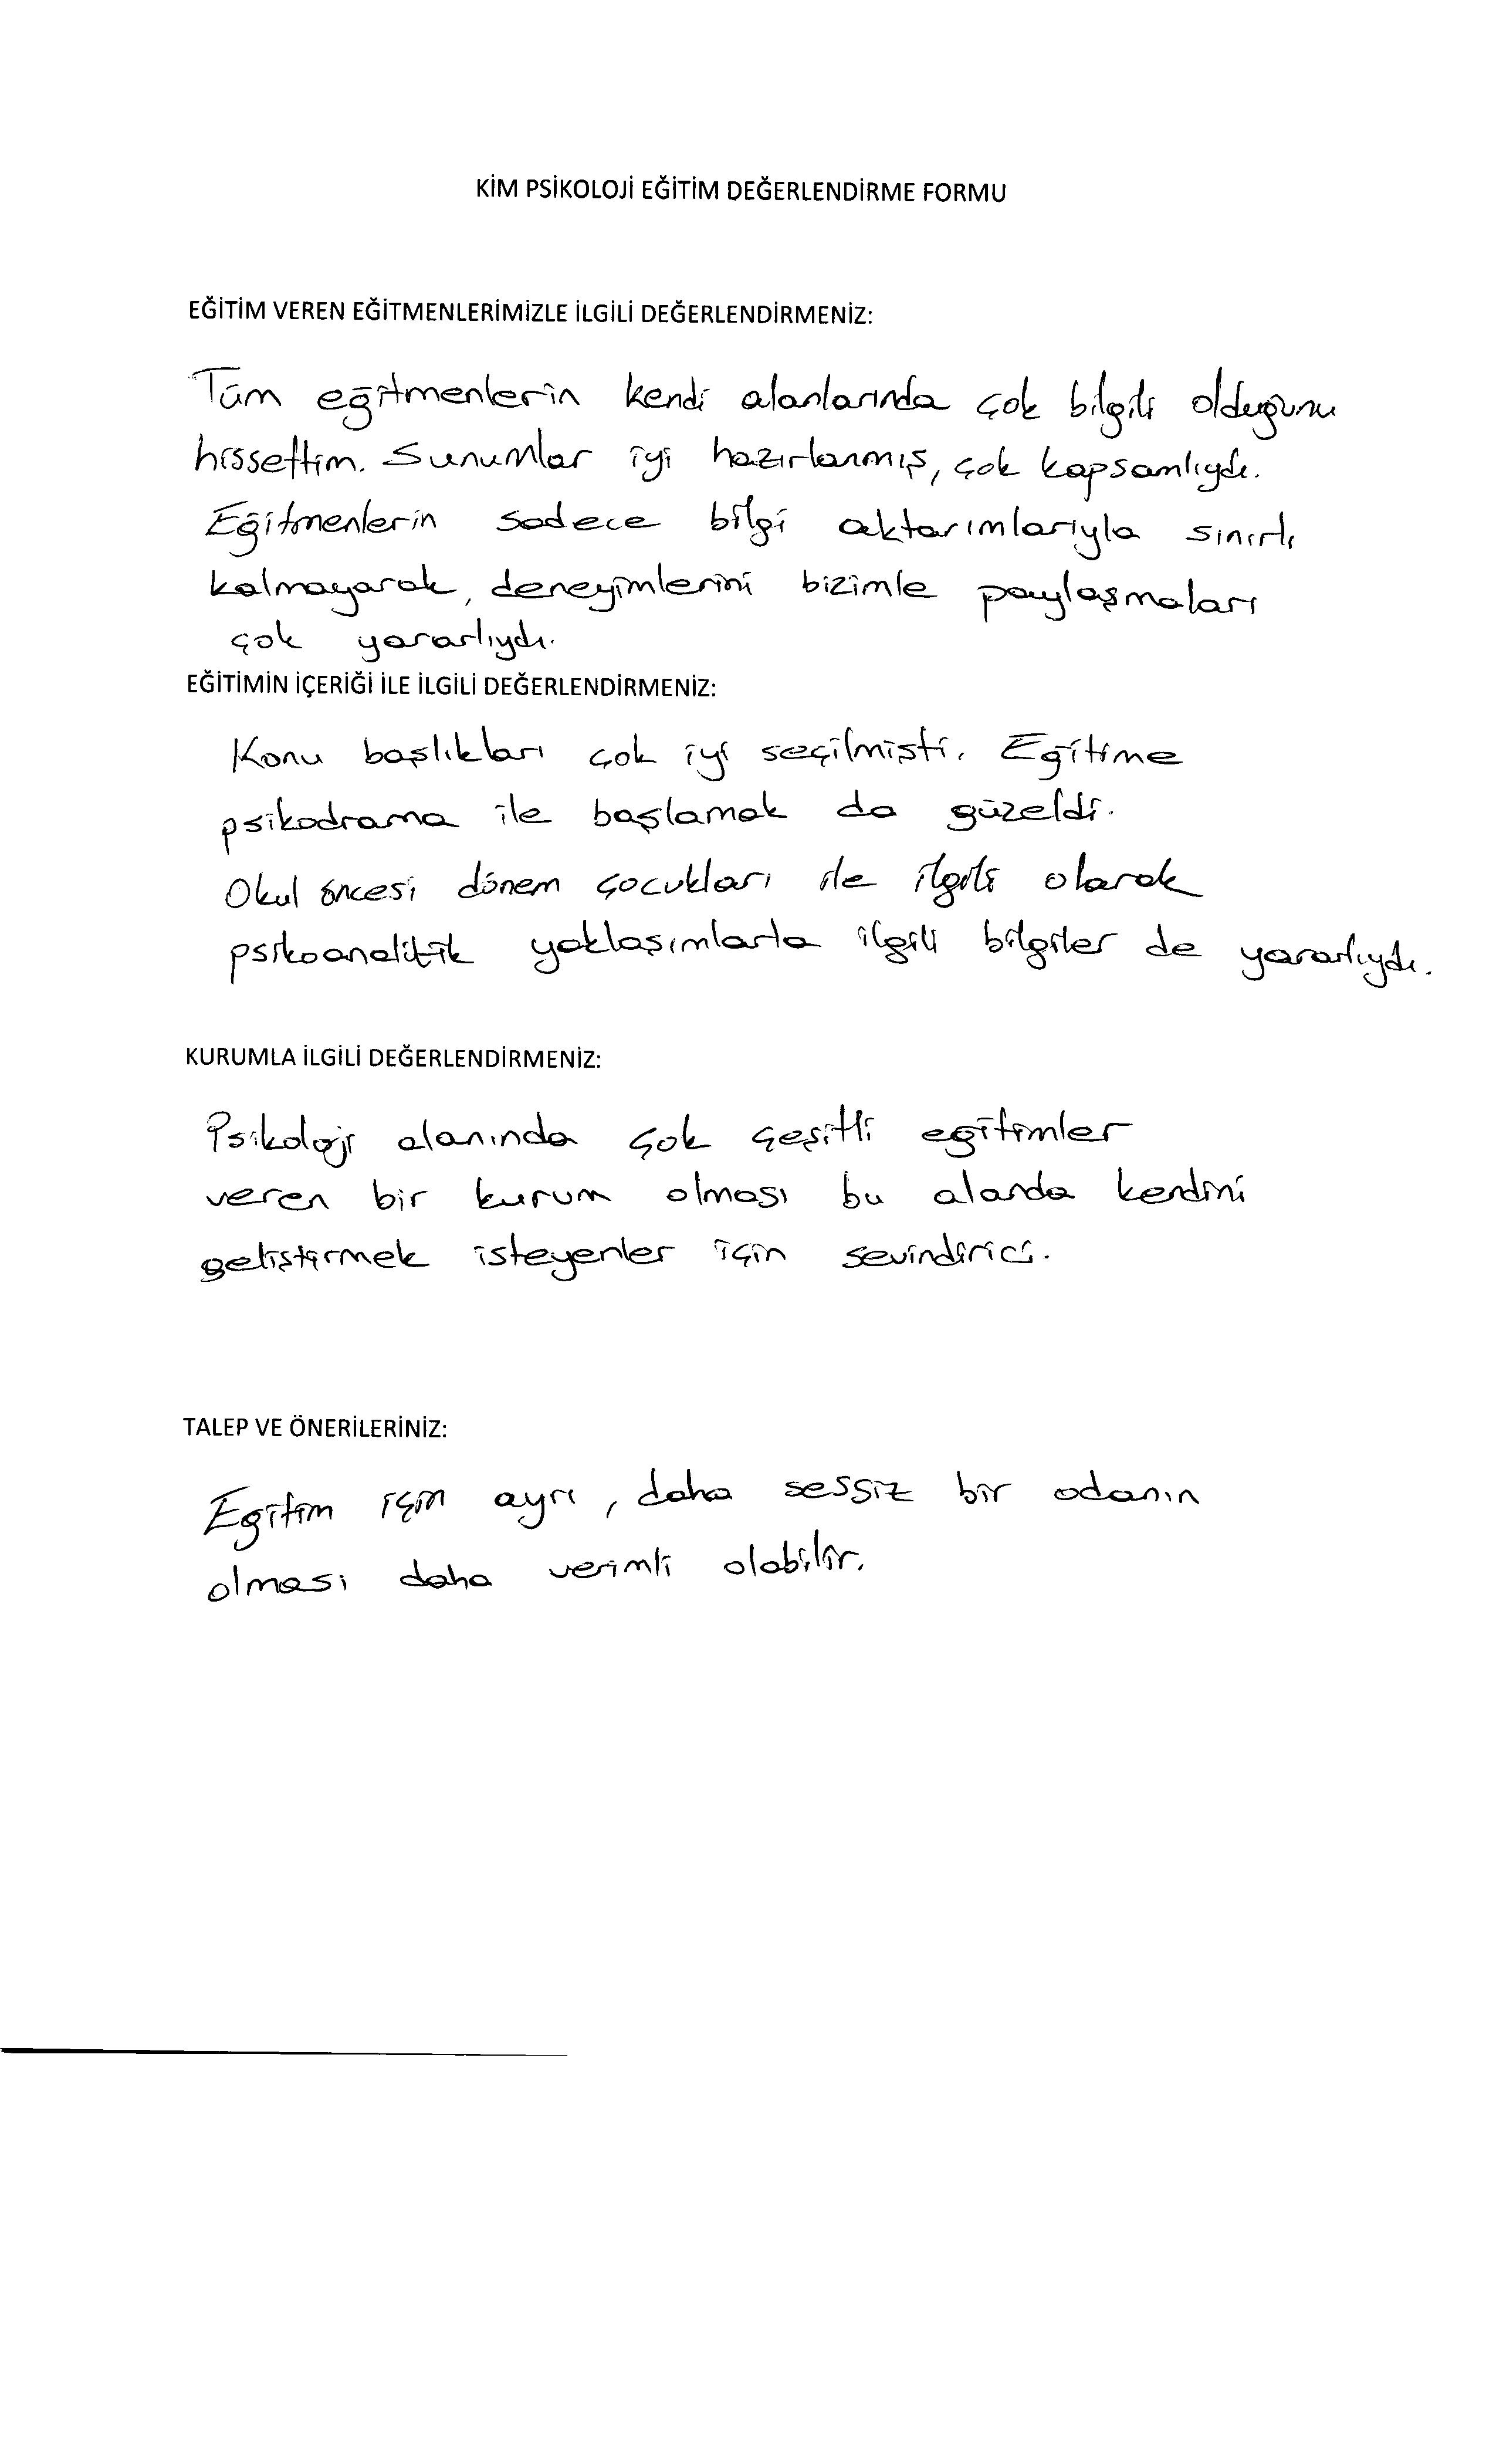 KİM PSİKOLOJİ EĞİTİM DEĞERLENDİRME FORMU
EĞİTİM VEREN EĞİTMENLERİMİZLE İLGİLİ DEĞERLENDİRMENİZ:
Tüm eğitmenlerin kendi alanlarında çok bilgili olduğunu
hissettim. Sunumlar iyi hazırlanmış, çok kapsamlıydı.
Eğitmenlerin sadece bilgi aktarımlarıyla sınırlı
kalmayarak, deneyimlerini bizimle paylaşmaları
çok yararlıydı.
EĞİTİMİN İÇERİĞİ İLE İLGİLİ DEĞERLENDİRMENİZ:
Konu başlıkları çok iyi seçilmişti. Eğitime
psikodrama ile başlamak da güzeldi.
Okul öncesi dönem çocukları ile ilgili olarak
psikoanalitik yaklaşımlarla ilgili bilgiler de yararlıydı.
KURUMLA İLGİLİ DEĞERLENDİRMENİZ:
Psikoloji alanında çok çeşitli eğitimler
veren bir kurum olması bu alanda kendini
geliştirmek isteyenler için sevindirici.
TALEP VE ÖNERİLERİNİZ:
Eğitim için ayrı, daha sessiz bir odanın
olması daha verimli olabilir.